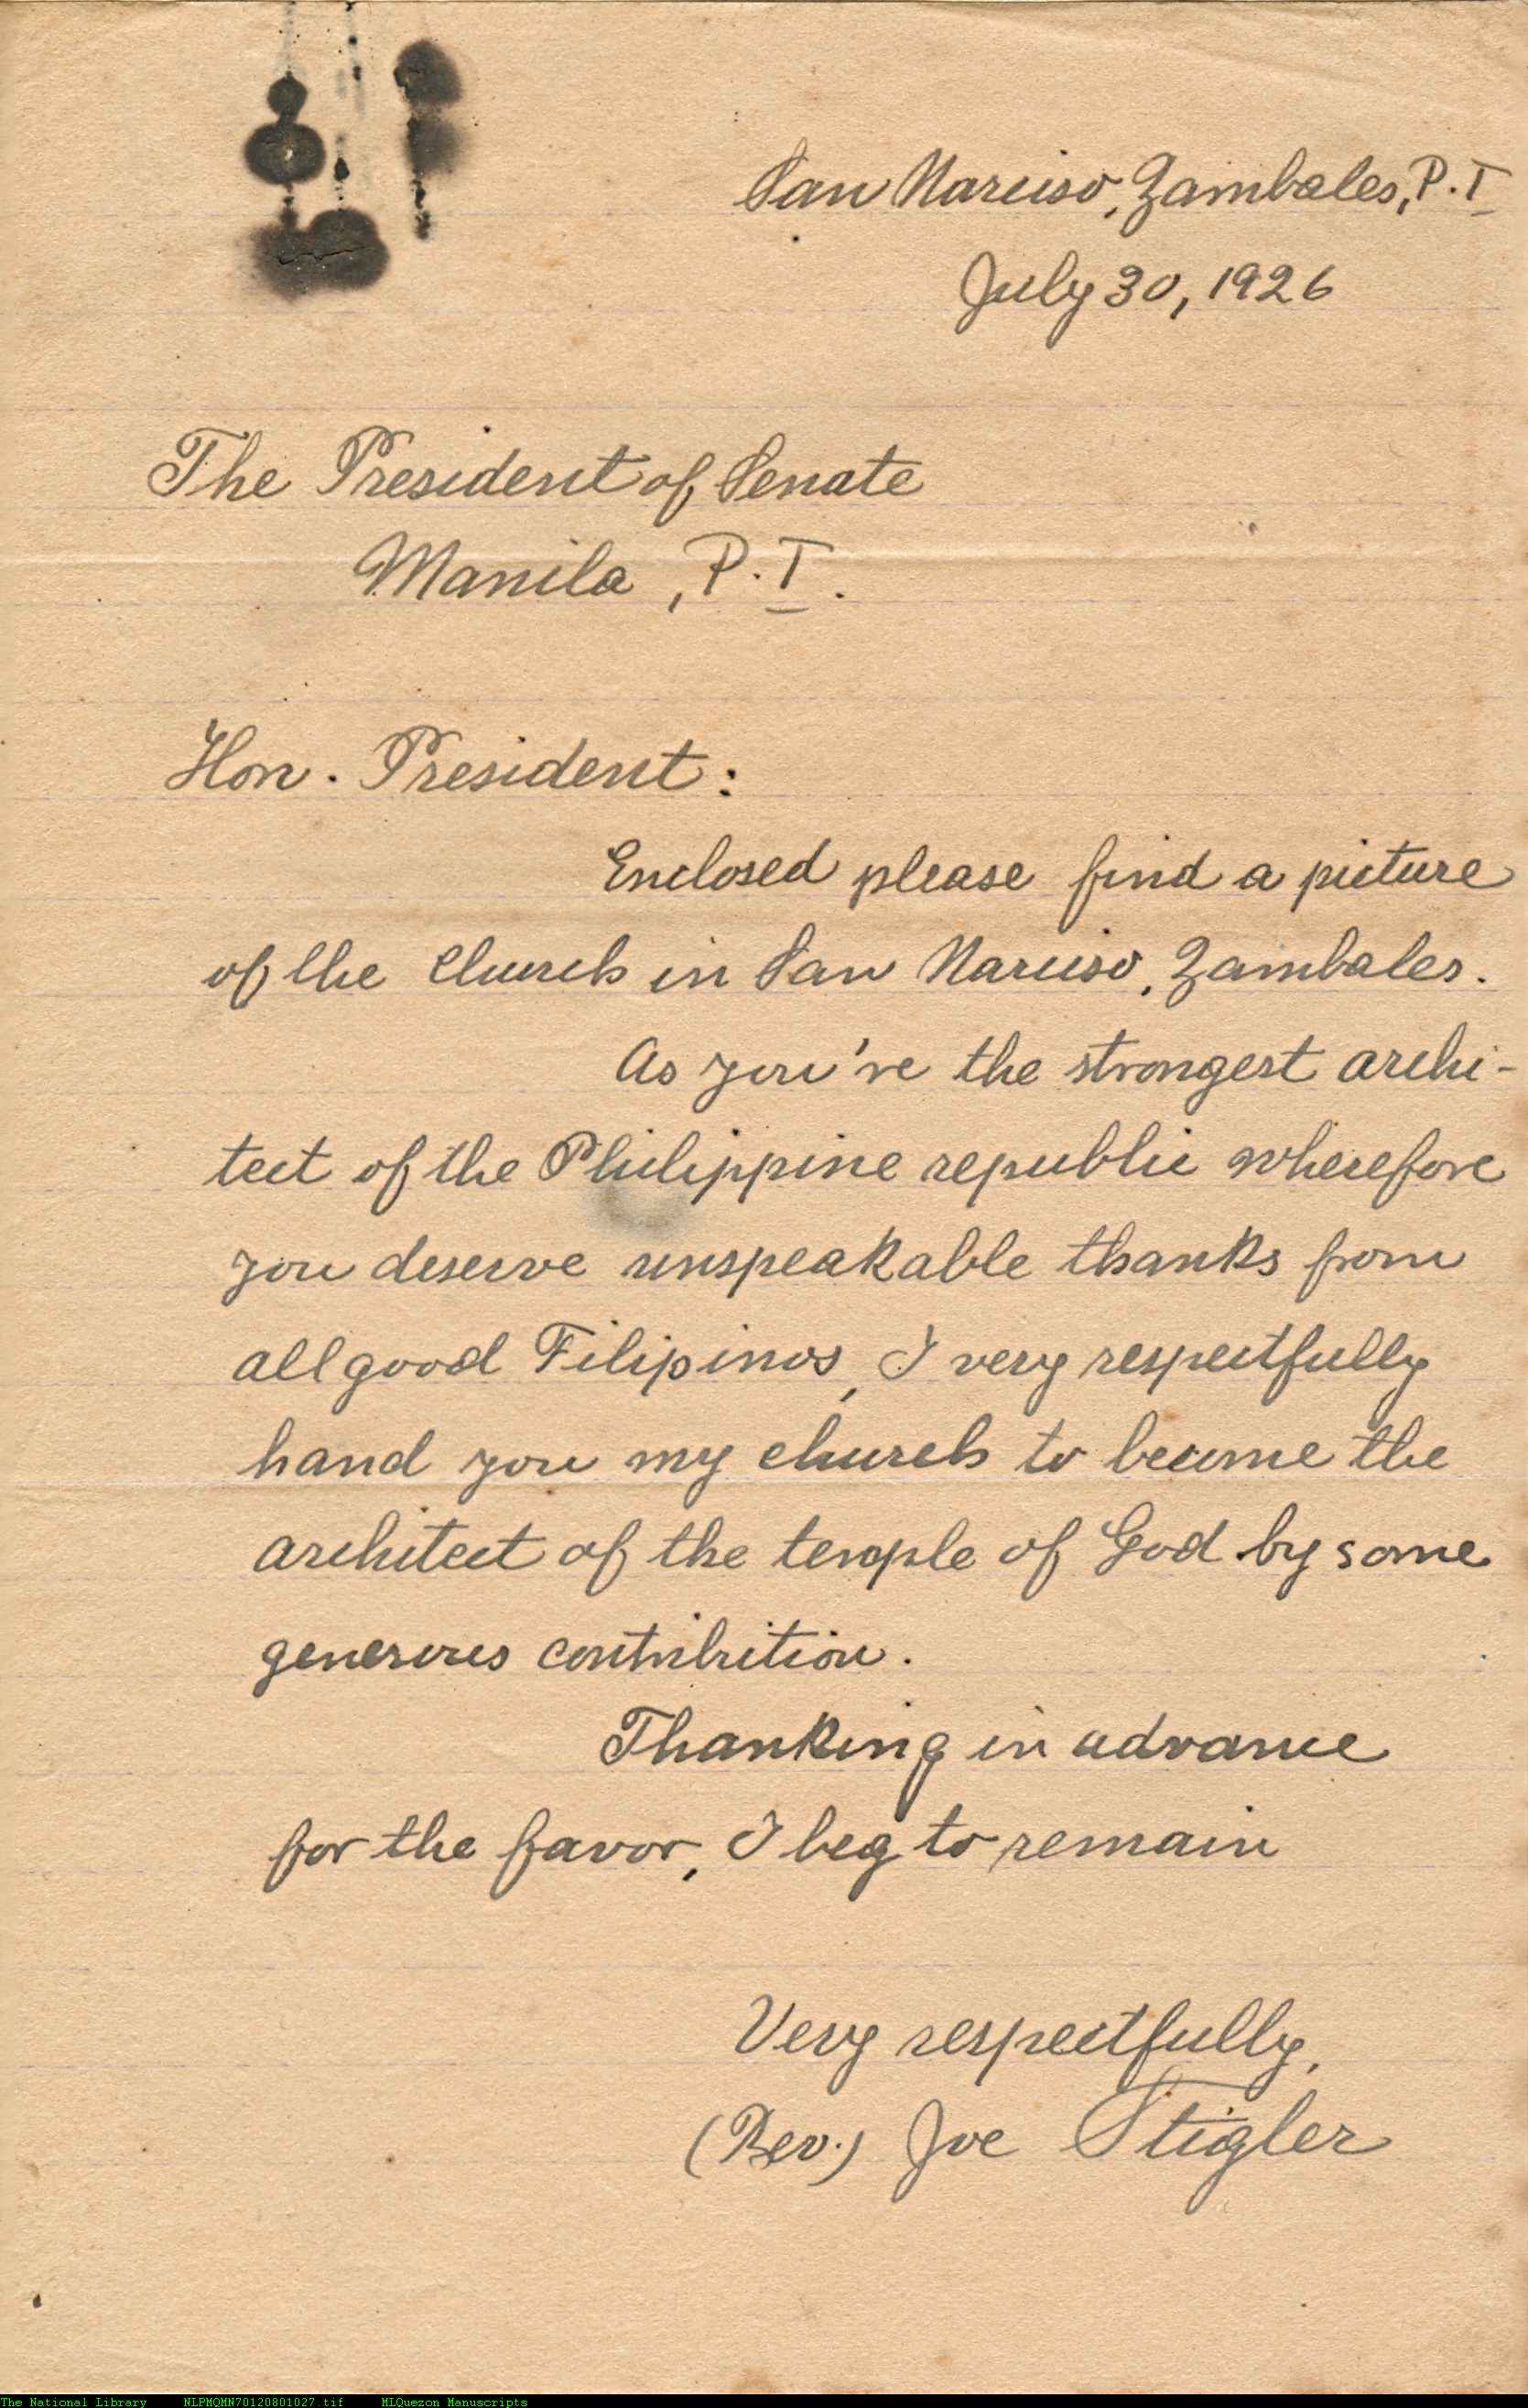 San Narciso, Zambales, P.I
July 30, 1926
The President of Senate
Manila, P.I.
Hon. President:
Enclosed please find a picture
of the church in San Narciso, Zambales.
As you've the strongest archi-
tect of the Philippine republic wherefore
you deserve unspeakable thanks from
all good Filipinos, I very respectfully
hand you my church to become the
architect of the temple of God by some
generous contribution.
Thanking in advance
for the favor, I beg to remain
Very respectfully,
(Rev.) Joe Stigler
The National Library NLPMQMN70120801027.tif MLQuezon Manuscripts